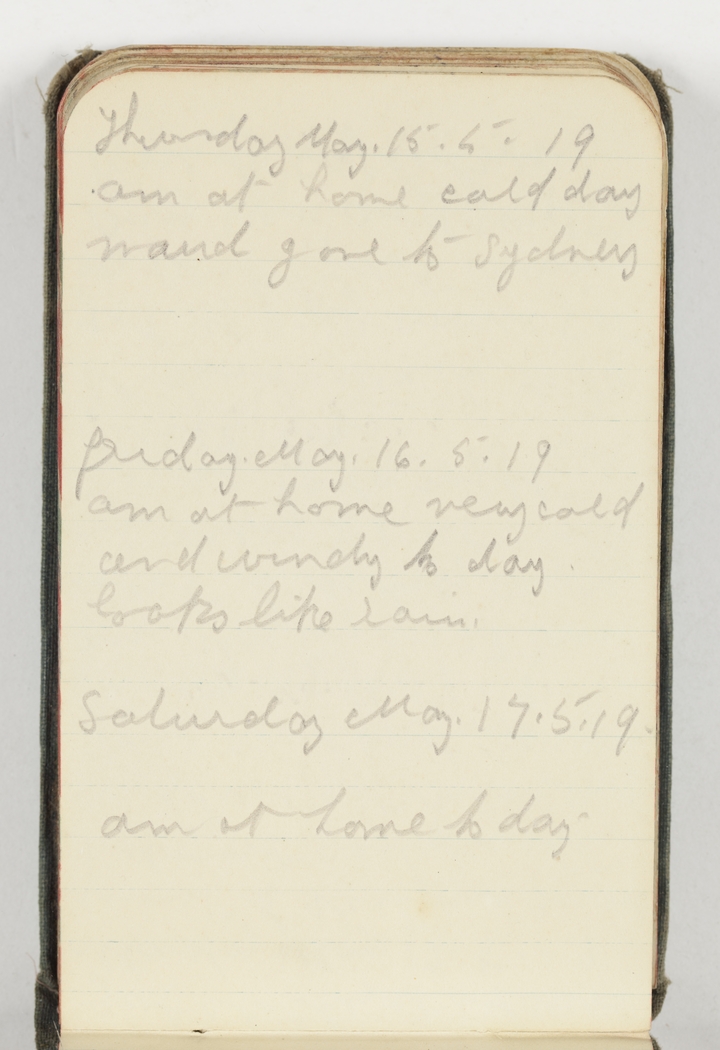 Thursday May. 15. 5. 19
am at home cold day
maud gone to Sydney
Friday. May. 16. 5. 19
am at home very cold
and windy to day.
looks like rain.
Saturday May. 17. 5. 19.
am at home to day